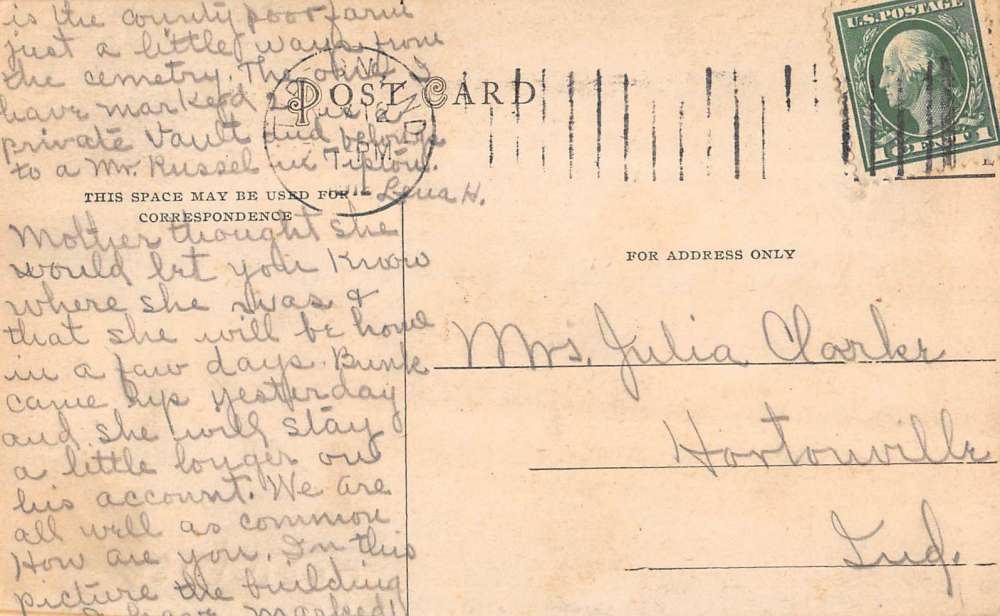 is the county poor farm
just a little ways from
the cemetry. The one I
have marked 2 is a
private vault and belongs
to a Mr. Russel in Tipton.
Lena H.
POST CARD
U.S. POSTAGE
1 CENT 1
IND
PM
THIS SPACE MAY BE USED FOR
CORRESPONDENCE
Mother thought she
would let you know
where she was &
that she will be home
in a faw days. Bunk
came up yesterday
and she will stay
a little longer on
his account. We are
all well as common.
How are you. In this
picture the building
I have marked 1
FOR ADDRESS ONLY
Mrs. Julia Clarke
Hortonville
Ind.